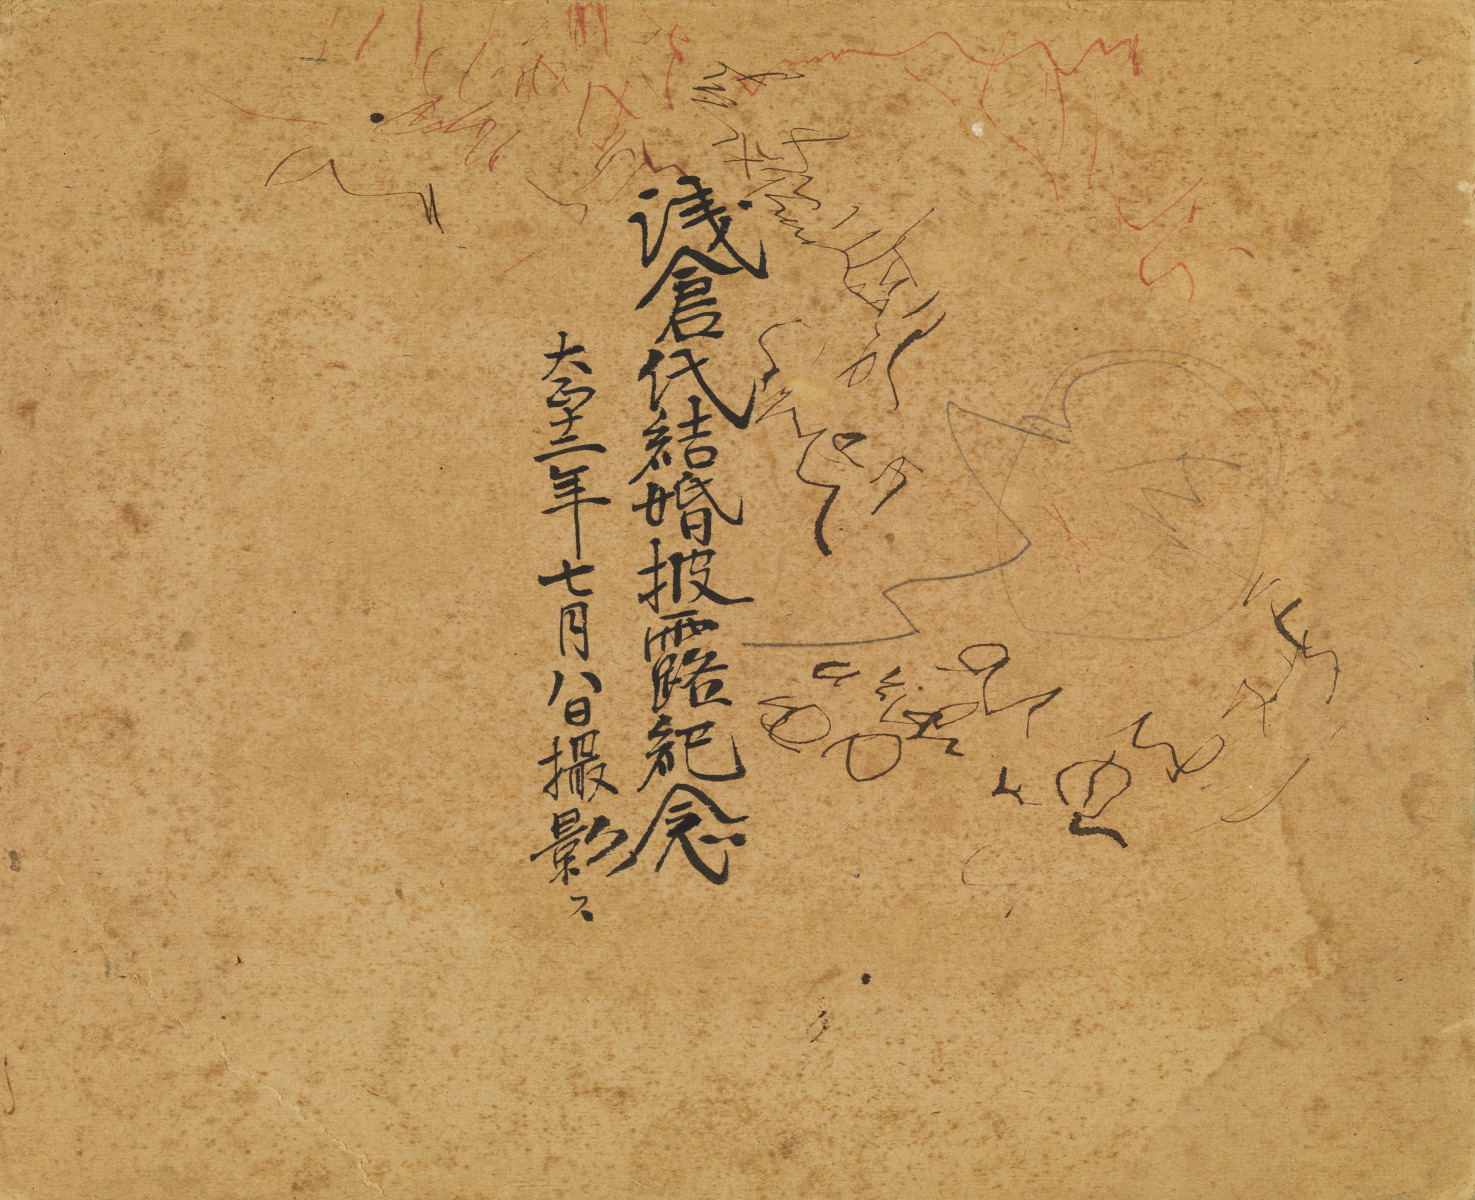 浅倉代結婚披露紀念
大正十二年七月八日撮影ス